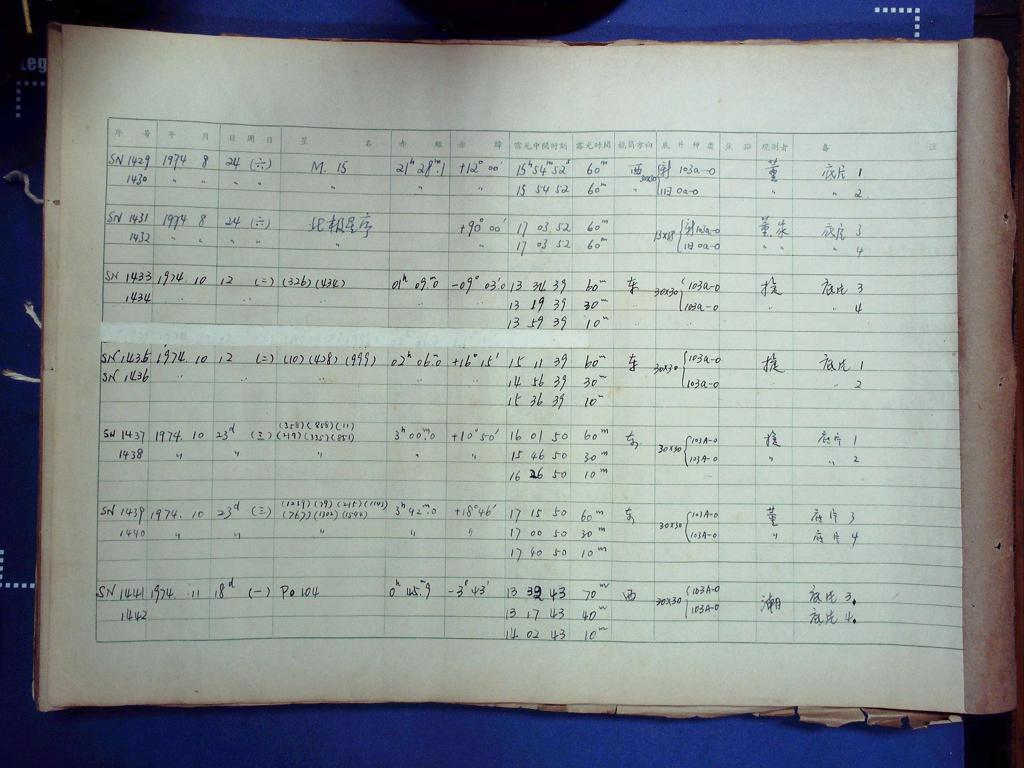 序 号 年 月 日 周 日 星 名 赤 经 赤 纬 露光中间时刻 露光时间 镜筒方向 底 片 种 类 观测者 备 注
SN 1429 1974 8 24 (六) M. 15 21ʰ 28ᵐ.1 +12° 00′ 15ʰ 54ᵐ 52ˢ 60ᵐ 西 30×30 新 103a-0 董 底片 1
1430 〃 〃 〃 〃 〃 〃 15 54 52 60ᵐ 〃 旧 0a-0 〃 〃 2
SN 1431 1974 8 24 (六) 北极星序 +90° 00′ 17 03 52 60ᵐ 13×18 新 103a-0 董 底片 3
1432 〃 〃 〃 〃 〃 〃 17 03 52 60ᵐ 旧 0a-0 〃 〃 〃 4
SN 1433 1974. 10 12 (二) (326) (434) 01ʰ 09ᵐ.0 -09° 03′.0 13 34 39 60ᵐ 东 30×30 103a-0 底片 3
1434 〃 〃 〃 〃 〃 13 19 39 30ᵐ 103a-0 〃 〃 4
13 59 39 10ᵐ 〃 〃
SN 1435 1974. 10 12 (二) (10) (438) (999) 02ʰ 06ᵐ.0 +16° 15′ 15 11 39 60ᵐ 东 30×30 103a-0 底片 1
SN 1436 〃 〃 〃 〃 〃 14 56 39 30ᵐ 103a-0 〃 〃 2
15 36 39 10ᵐ
(358) (858) (11)
SN 1437 1974. 10 23ᵈ (三) (219) (335) (851) 3ʰ 00ᵐ.0 +10° 50′ 16 01 50 60ᵐ 东 30×30 103A-0 底片 1
1438 〃 〃 〃 〃 〃 15 46 50 30ᵐ 103A-0 〃 〃 2
16 26 50 10ᵐ
(1239) (79) (215) (1143)
SN 1439 1974. 10 23ᵈ (三) (767) (1302) (1544) 3ʰ 42ᵐ.0 +18° 46′ 17 15 50 60ᵐ 东 30×30 103A-0 董 底片 3
1440 〃 〃 〃 〃 〃 17 00 50 30ᵐ 103A-0 〃 底片 4
17 40 50 10ᵐ
SN 1441 1974. 11 18ᵈ (一) Po 104 0ʰ 45ᵐ.9 -3° 43′ 13 32 43 70ᵐ 西 30×30 103A-0 潮 底片 3.
1442 13 17 43 40ᵐ 103A-0 底片 4.
14 02 43 10ᵐ